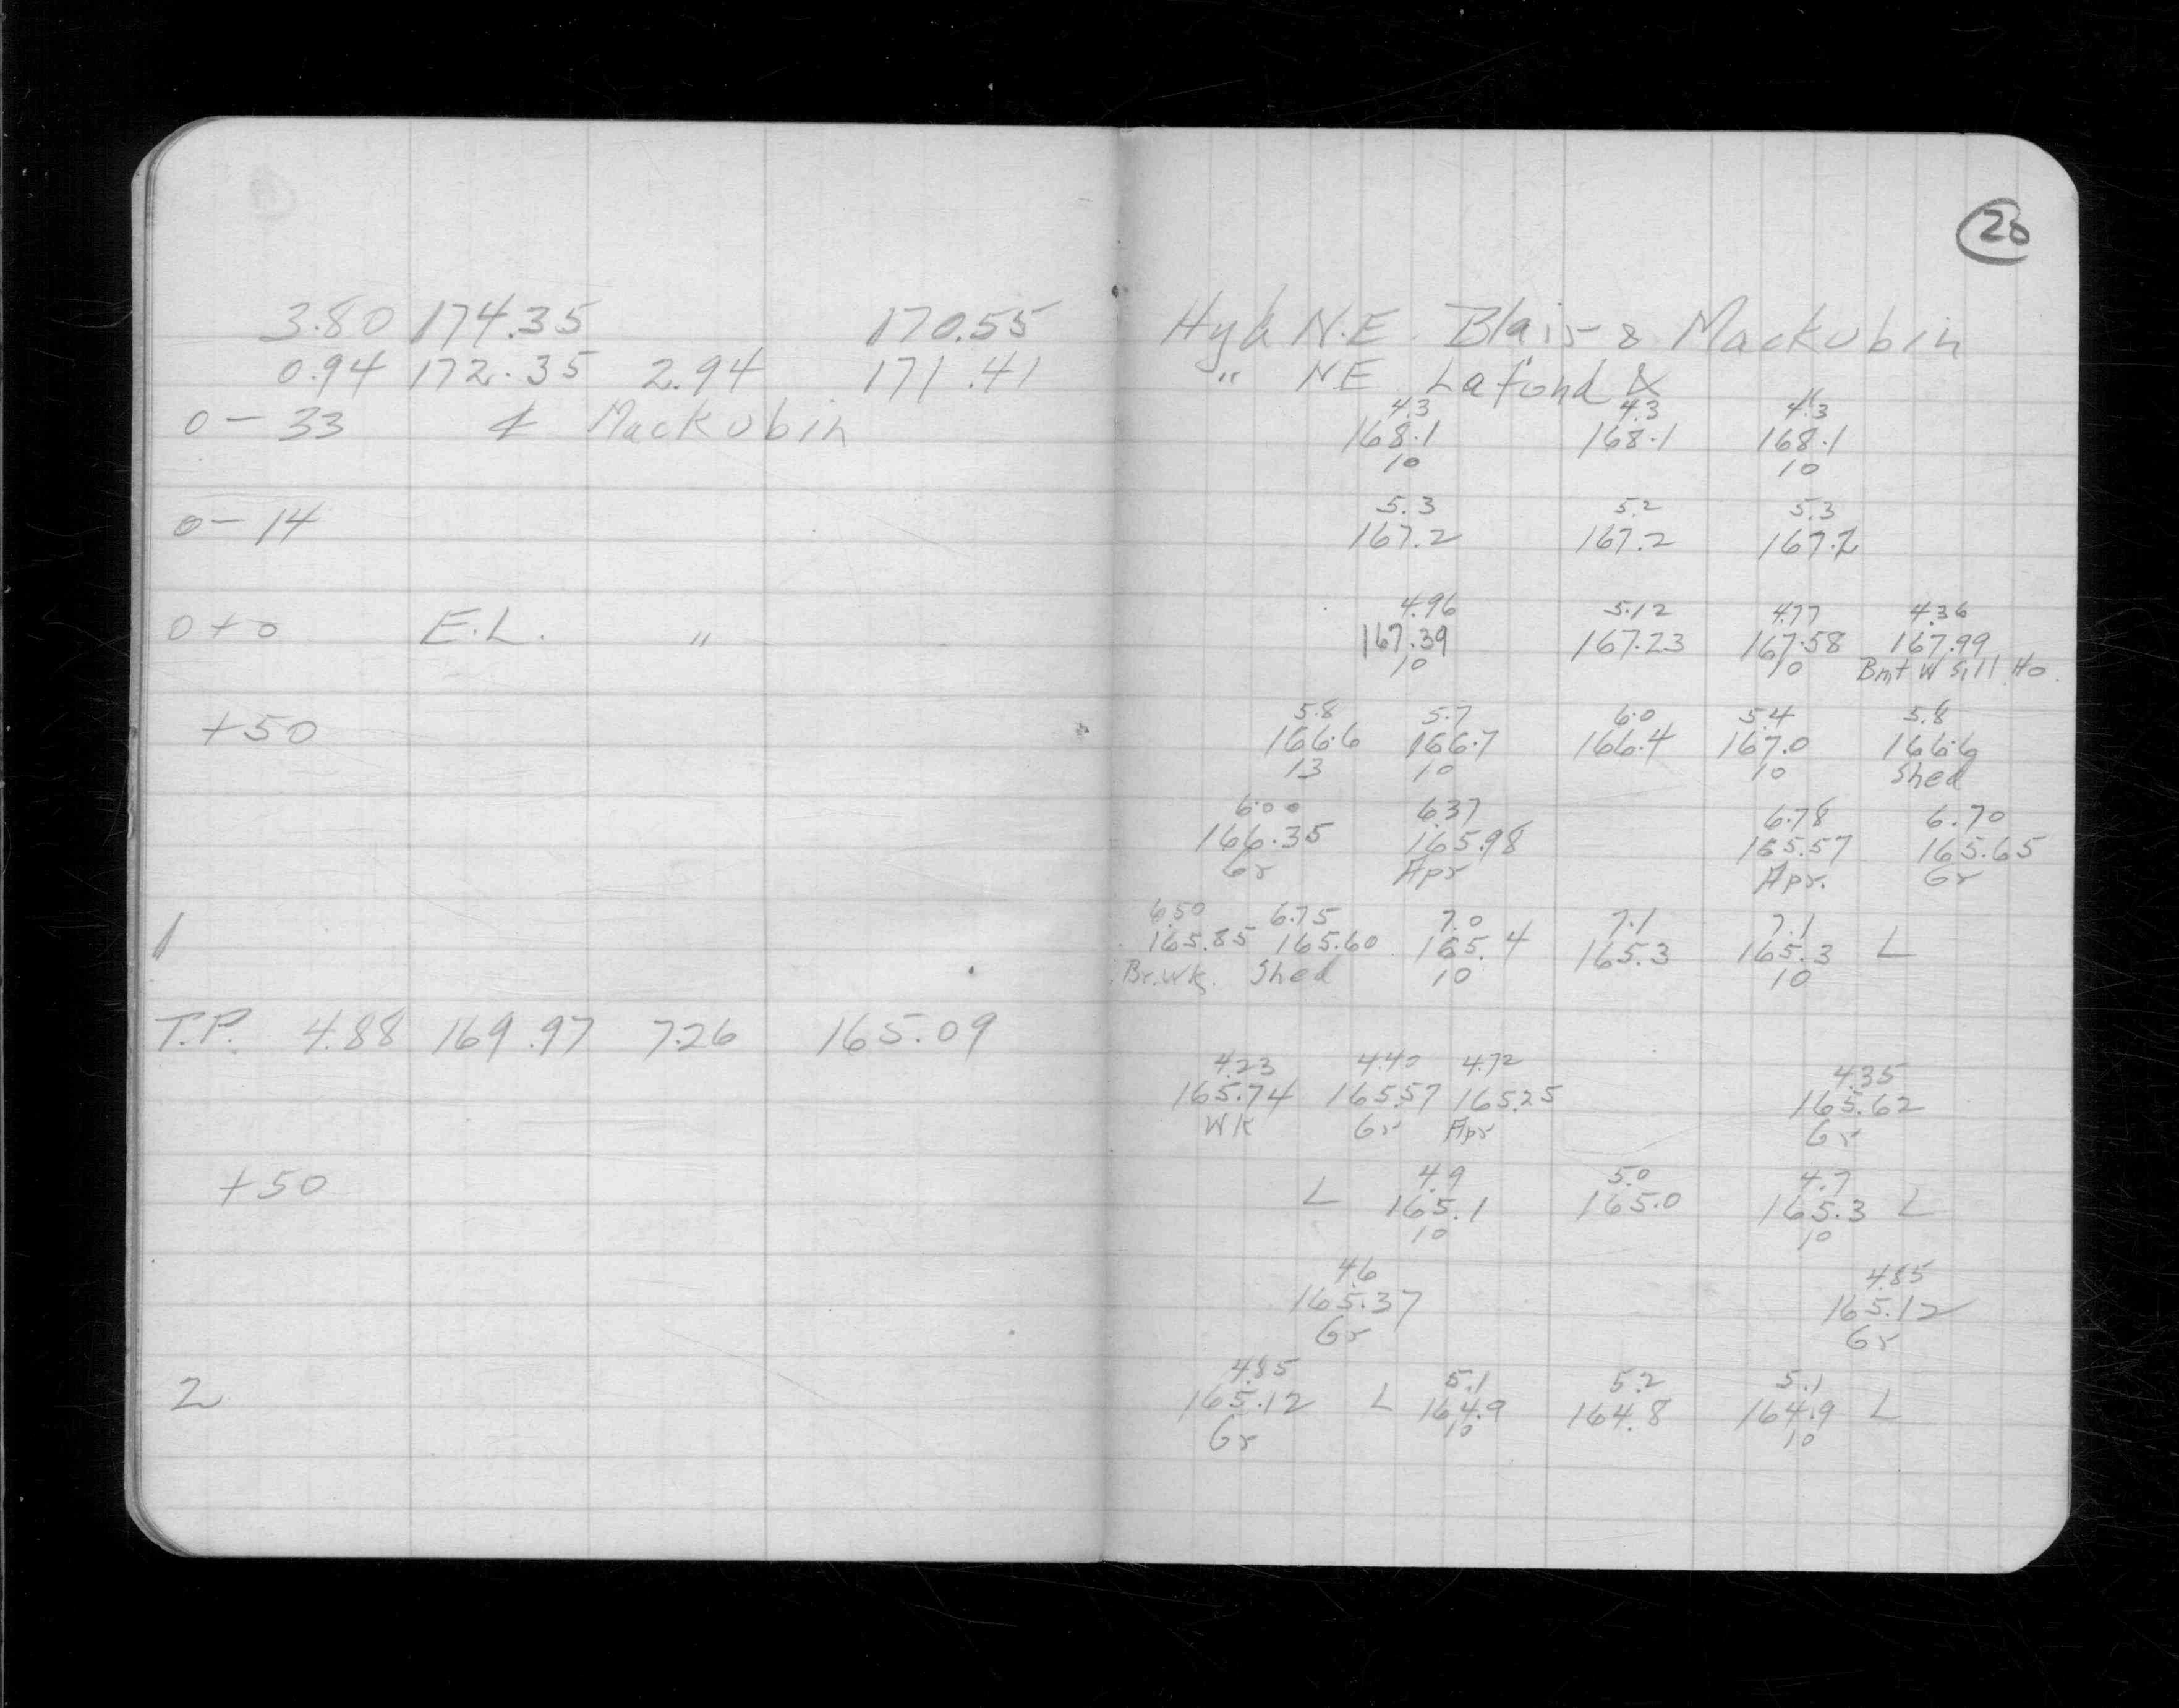 20
3.80 174.35 170.55 Hyd N.E. Blair & Mackubin
0.94 172.35 2.94 171.41 " N.E. Lafond &
4.3 4.3 4.3
0 - 33 ℄ Mackubin 168.1 168.1 168.1
10 10
5.3 5.2 5.3
0 - 14 167.2 167.2 167.2
4.96 5.12 4.77 4.36
0 + 0 E.L. " 167.39 167.23 167.58 167.99
10 10 Bmt W Sill Ho.
5.8 5.7 6.0 5.4 5.8
+ 50 166.6 166.7 166.4 167.0 166.6
13 10 10 Shed
6.00 6.37 6.78 6.70
166.35 165.98 165.57 165.65
Gr Apr Apr. Gr
6.50 6.75 7.0 7.1 7.1
1 165.85 165.60 165.4 165.3 165.3 L
Br.Wk. Shed 10 10
T.P. 4.88 169.97 7.26 165.09
4.23 4.40 4.72 4.35
165.74 165.57 165.25 165.62
Wk Gr Apr Gr
4.9 5.0 4.7
+ 50 L 165.1 165.0 165.3 L
10 10
4.6 4.85
165.37 165.12
Gr Gr
4.85 5.1 5.2 5.1
2 165.12 L 164.9 164.8 164.9 L
Gr 10 10